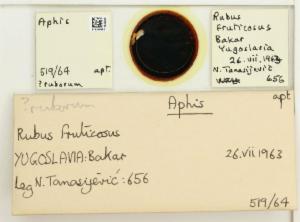 Aphis
519/64 apt.
?ruborum
Rubus
fruticosus
Bakar
Yugoslavia
26.vii.1963
N. Tanasijević
656
?ruborum
Aphis
apt
Rubus fruticosus
YUGOSLAVIA: Bakar
26.vii.1963
Leg N. Tanasijević: 656
519/64